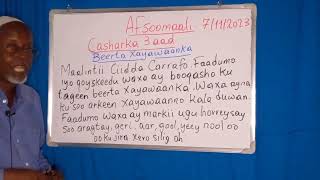 Afsoomaali 7/11/2023
Casharka 3aad
Beerta Xayawaanka
Maalintii Ciidda Carrafo, Faadumo
iyo qoyskeedu waxa ay booqasho ku
tageen beerta xayawaanka. Waxa ayna
ku soo arkeen xayawaanno kala duwan.
Faadumo waxa ay markii ugu horreysay
soo aragtay, geri, aar, gool, yeey nool oo
ku jira xero silig ah